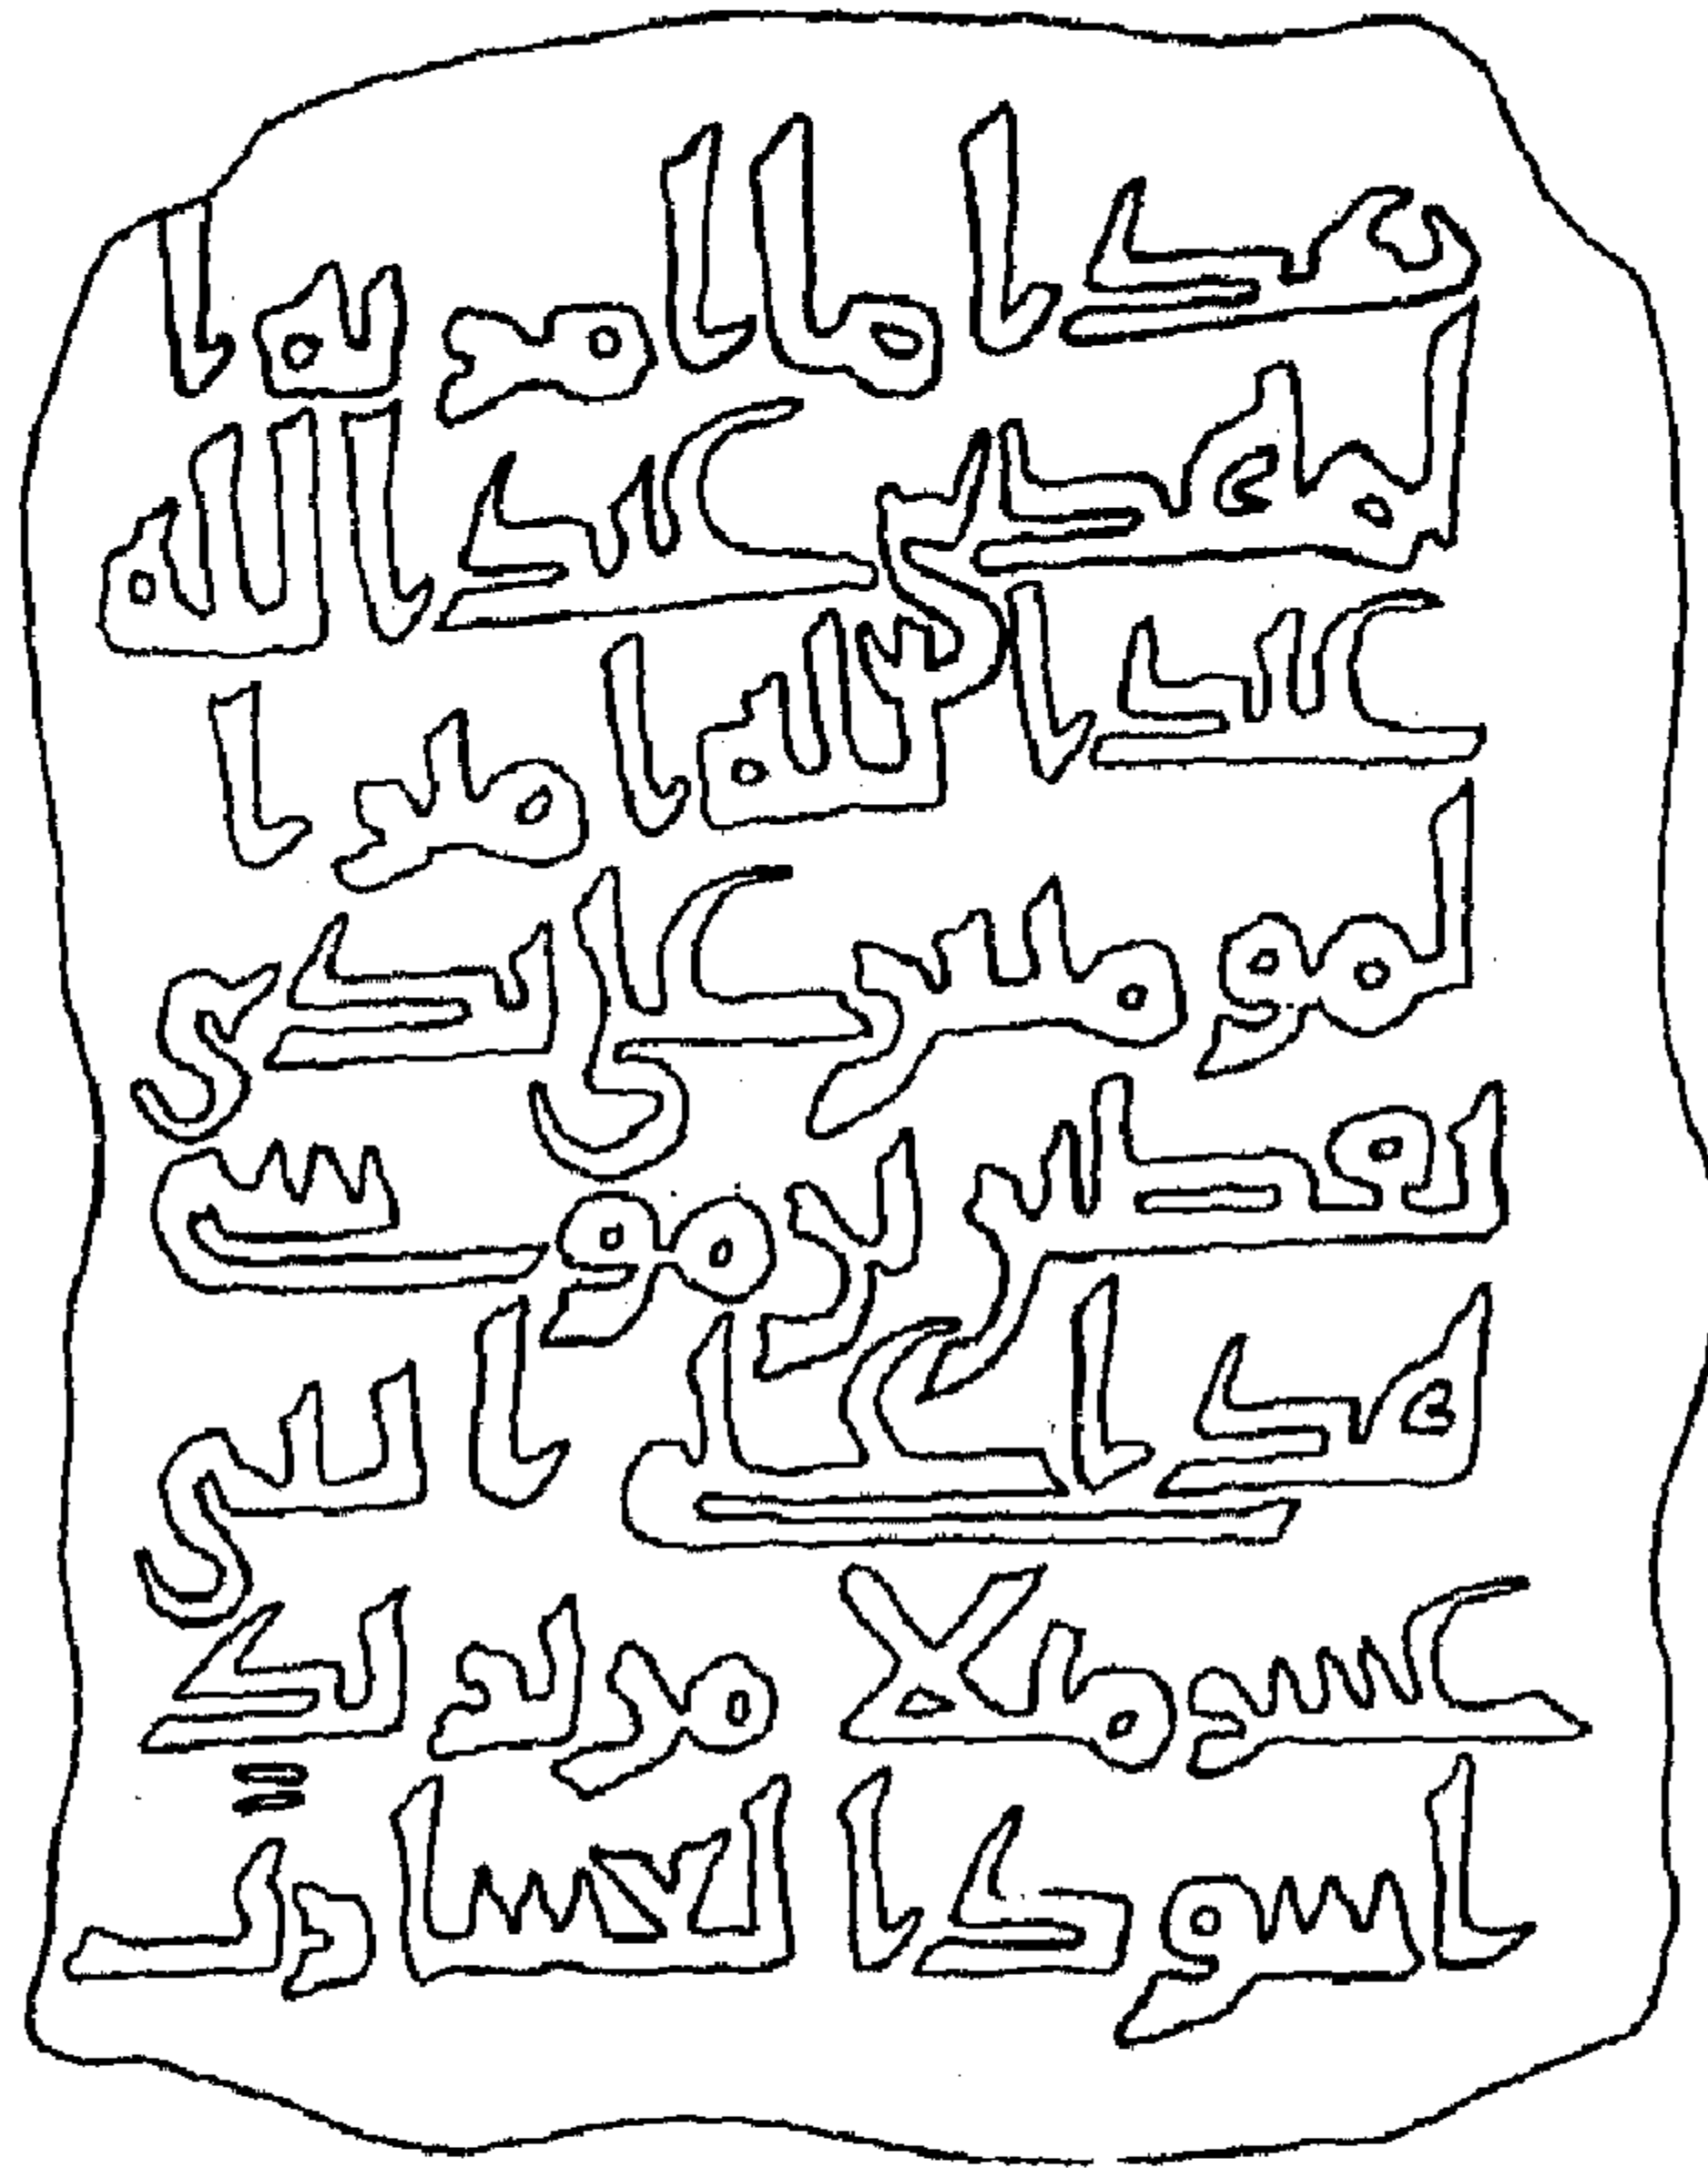 هذا ما امر به ا
لمهدي عبد الله
عبد الله امير ا
لمومنين على يدي
يقطين بن موسى
هذا على اثني
عشر ميلا من بريد
اسود